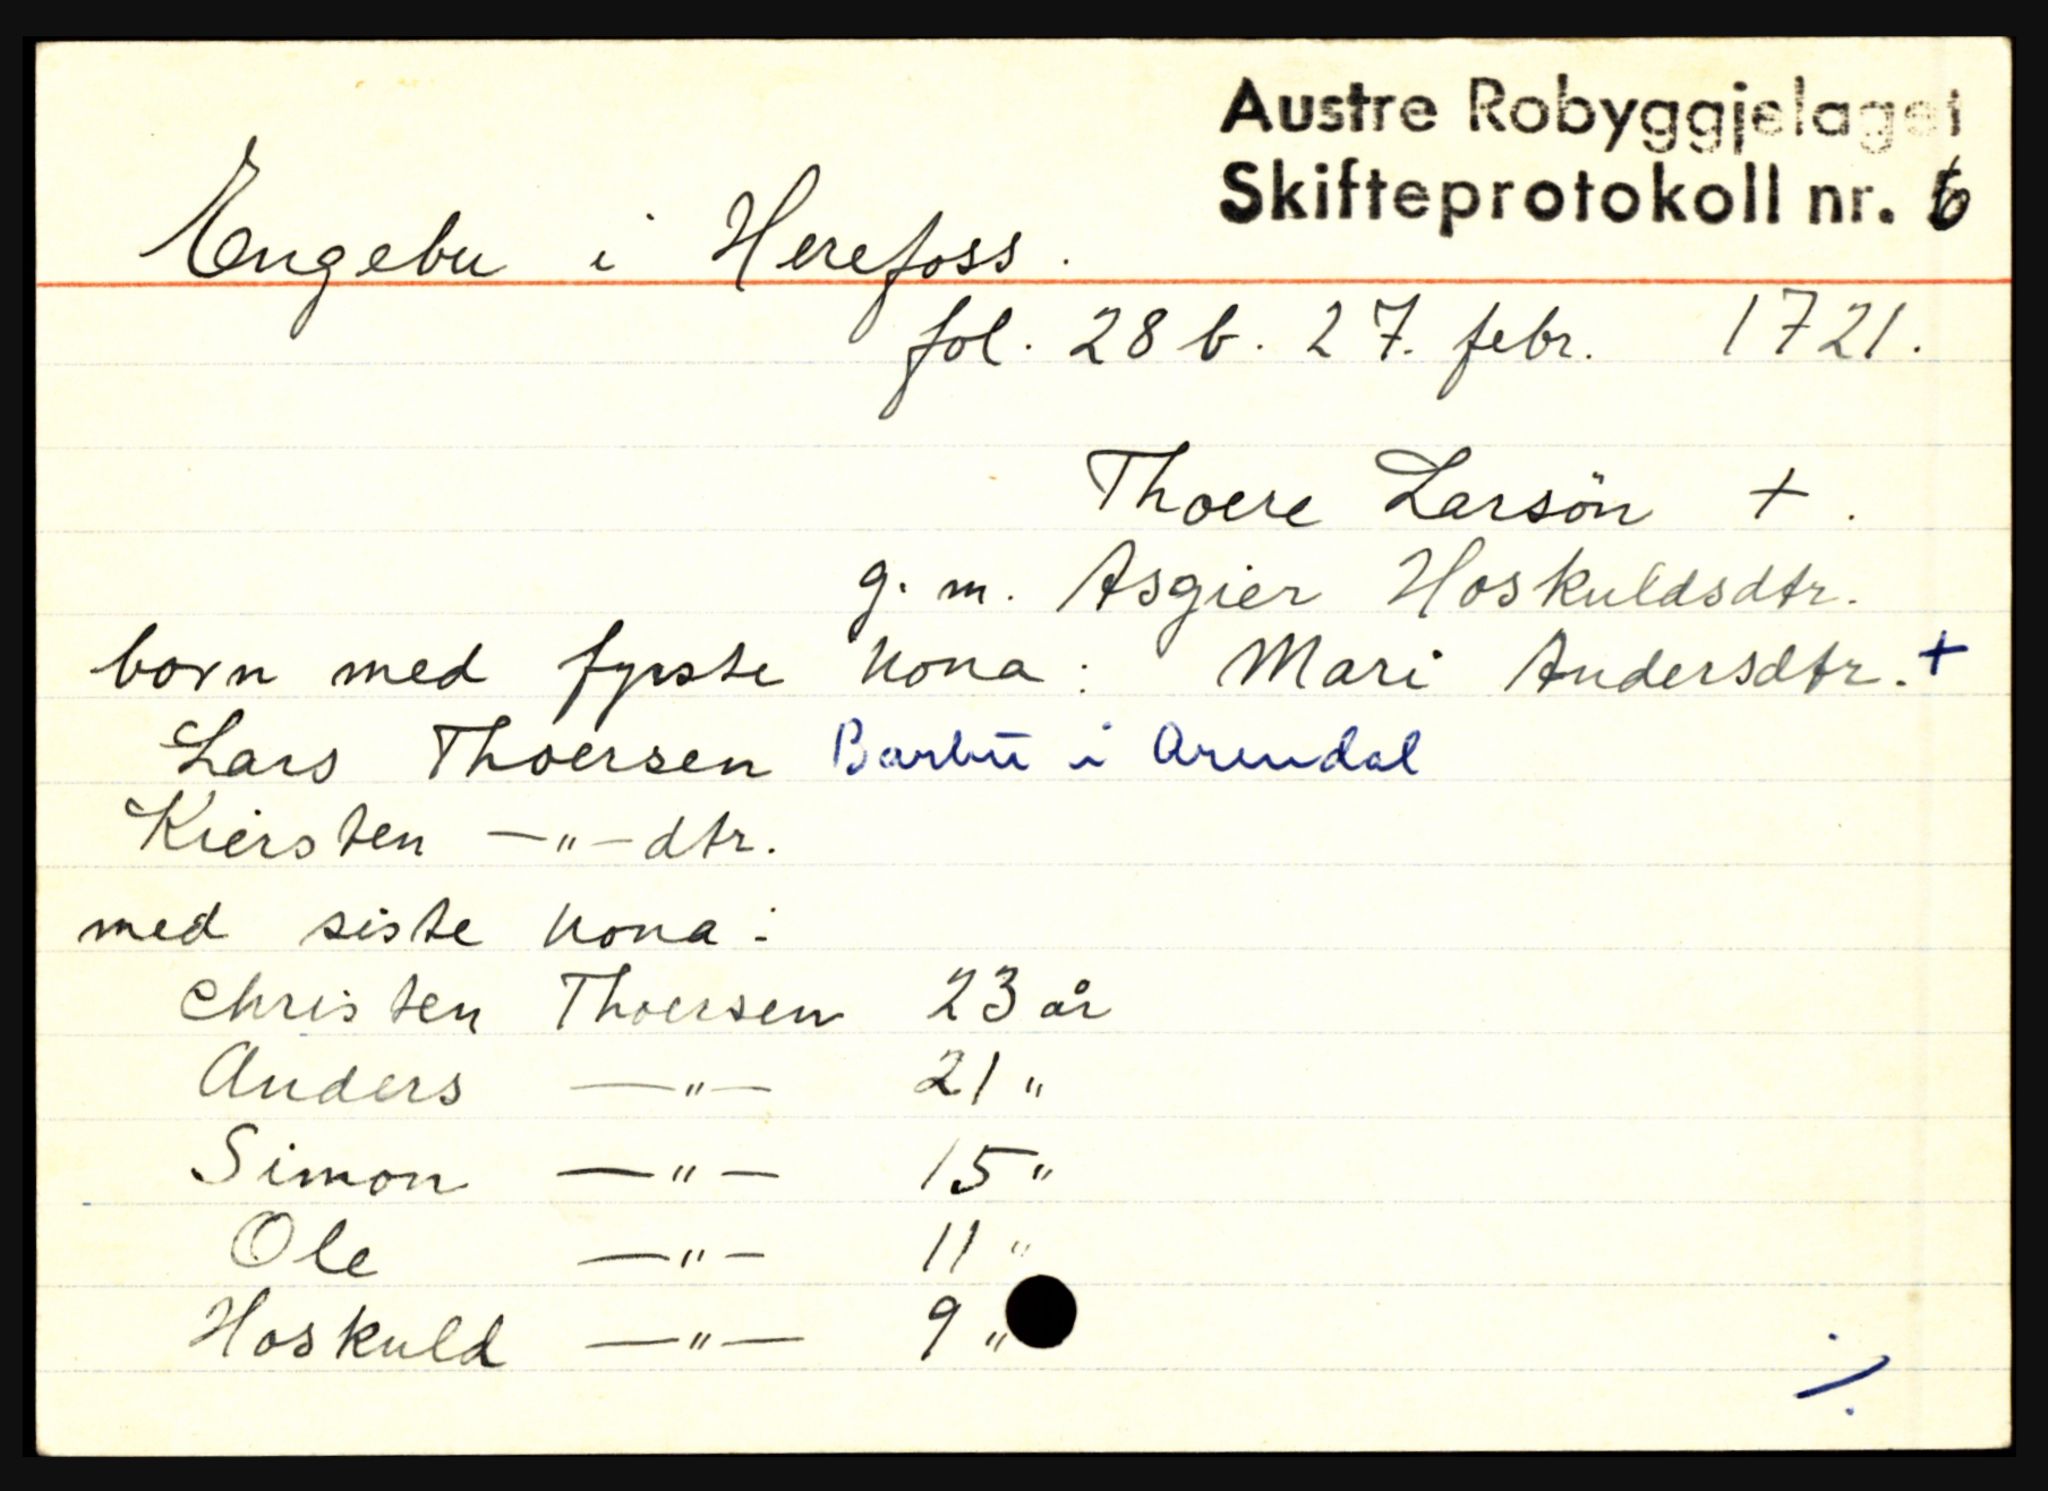 Austre Robyggjelaget
Skifteprotokoll nr. 6
Engebu i Herefoss.
fol. 28 b. 27. febr. 1721.
Thoere Larsön +.
g. m. Asgier Hoskuldsdtr.
born med fyrste kona: Mari Andersdtr. +
Lars Thoersen Barbū i Arendal
Kiersten —„—dtr.
med siste kona:
Christen Thoersen 23 år
Anders —„— 21 „
Simon —„— 15 „
Ole —„— 11 „
Hoskuld —„— 9 „
./.